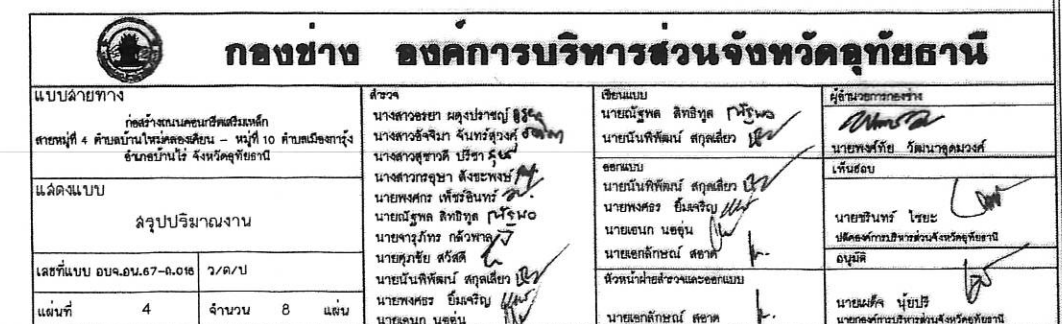 กองช่าง องค์การบริหารส่วนจังหวัดอุทัยธานี
แบบสายทาง
ก่อสร้างถนนคอนกรีตเสริมเหล็ก
สายหมู่ที่ 4 ตำบลบ้านใหม่คลองเคียน - หมู่ที่ 10 ตำบลเมืองการุ้ง
อำเภอบ้านไร่ จังหวัดอุทัยธานี
แสดงแบบ
สรุปปริมาณงาน
เลขที่แบบ อบจ.อน.67-ถ.016 ว/ด/ป
แผ่นที่ 4 จำนวน 8 แผ่น
สำรวจ
นางสาวอรยา ผดุงปราชญ์
นางสาวอัจจิมา จันทร์สุวงศ์
นางสาวสุชาวดี ปรีชา
นางสาวกรอุษา สังขะพงษ์
นายพงศกร เพ็ชร์อินทร์
นายณัฐพล สิทธิทูล
นายจารุภัทร กล้วพาล
นายศุภชัย สวัสดี
นายนันพิพัฒน์ สกุลเสี่ยว
นายพงศธร ยิ้มเจริญ
นายเอนก นออุ่น
เขียนแบบ
นายณัฐพล สิทธิทูล
นายนันพิพัฒน์ สกุลเสี่ยว
ออกแบบ
นายนันพิพัฒน์ สกุลเสี่ยว
นายพงศธร ยิ้มเจริญ
นายเอนก นออุ่น
นายเอกลักษณ์ สอาด
หัวหน้าฝ่ายสำรวจและออกแบบ
นายเอกลักษณ์ สอาด
ผู้อำนวยการกองช่าง
นายพงศ์ทัย วัฒนาอุดมวงศ์
เห็นชอบ
นายชรินทร์ ไชยะ
ปลัดองค์การบริหารส่วนจังหวัดอุทัยธานี
อนุมัติ
นายเผด็จ นุ้ยปรี
นายกองค์การบริหารส่วนจังหวัดอุทัยธานี